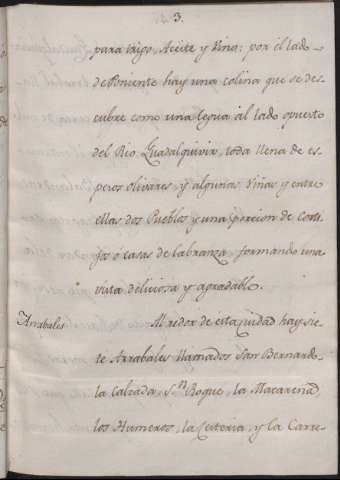 3.
para trigo, Aceite y Vino: por el lado
de Poniente hay una colina que se des-
cubre como una legua al lado opuesto
del Rio Guadalquivir, toda llena de es-
pesos olivares, y algunas Viñas y entre
ellas dos Pueblos y una porcion de corti-
jos ó casas de labranza, formando una
vista deliciosa y agradable.
Arrabales
Al redor de esta ciudad hay sie-
te Arrabales llamados San Bernardo
la Calzada, S.n Roque, la Macarena,
los Humeros, la Cesteria, y la Carre-